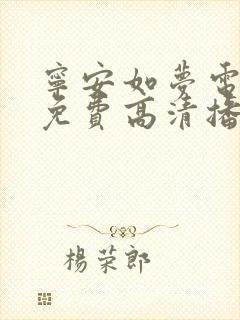 寧安如夢電
免費高清播
楊荣郎